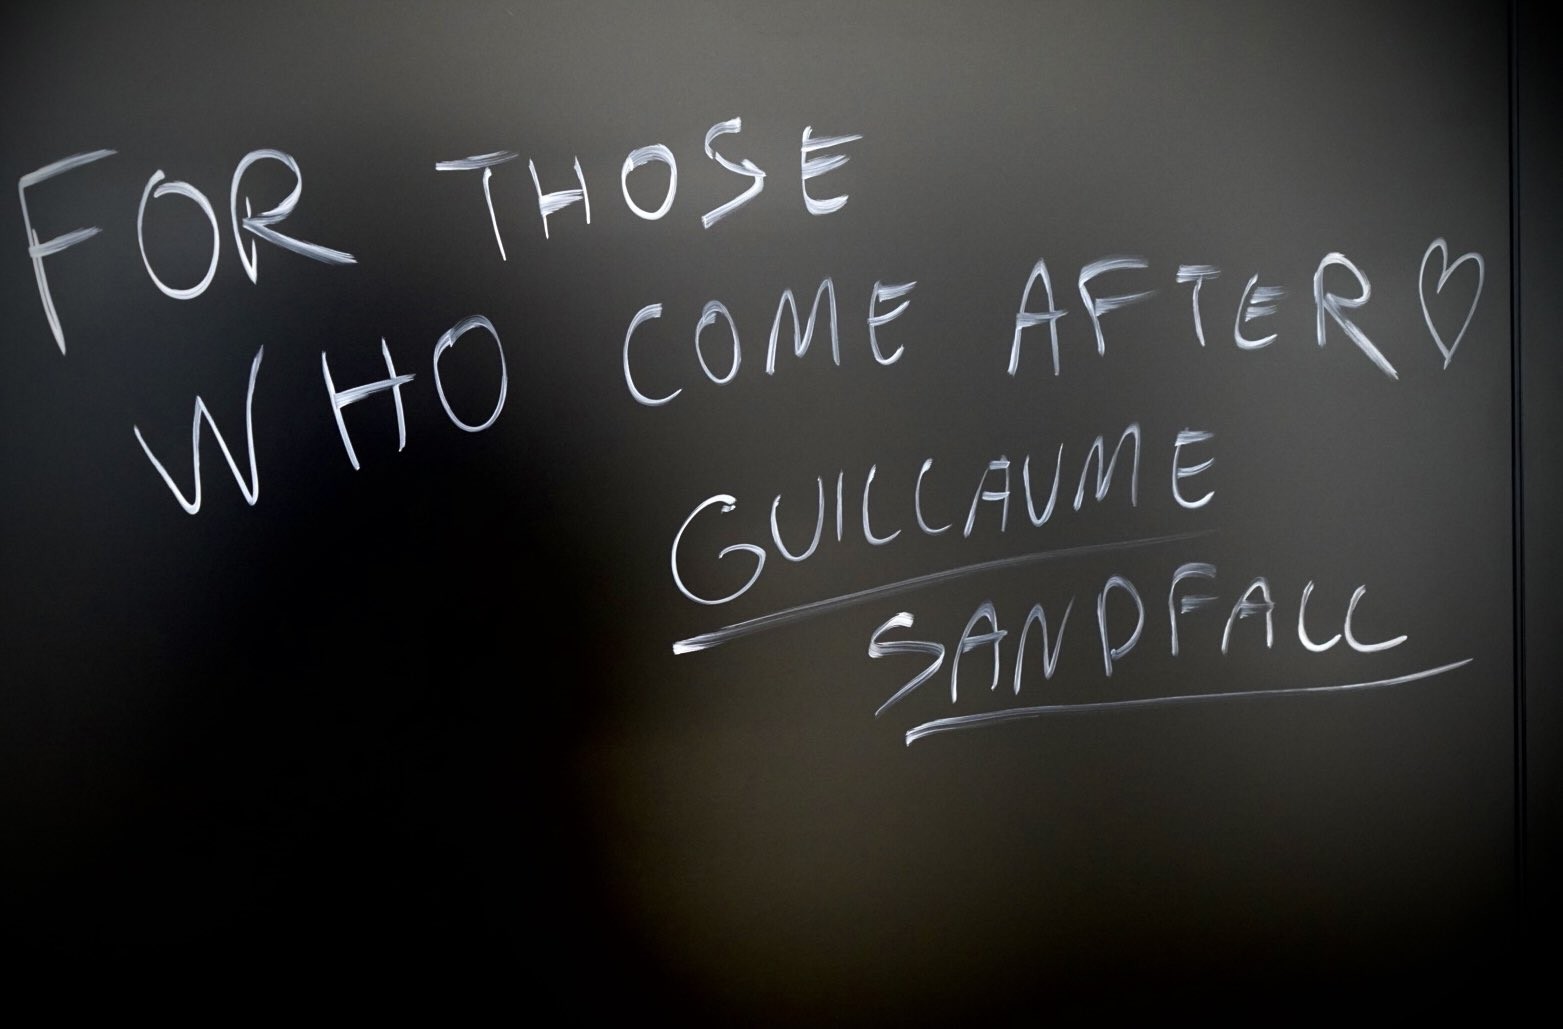 FOR THOSE
WHO COME AFTER ♡
GUILLAUME
SANDFALL